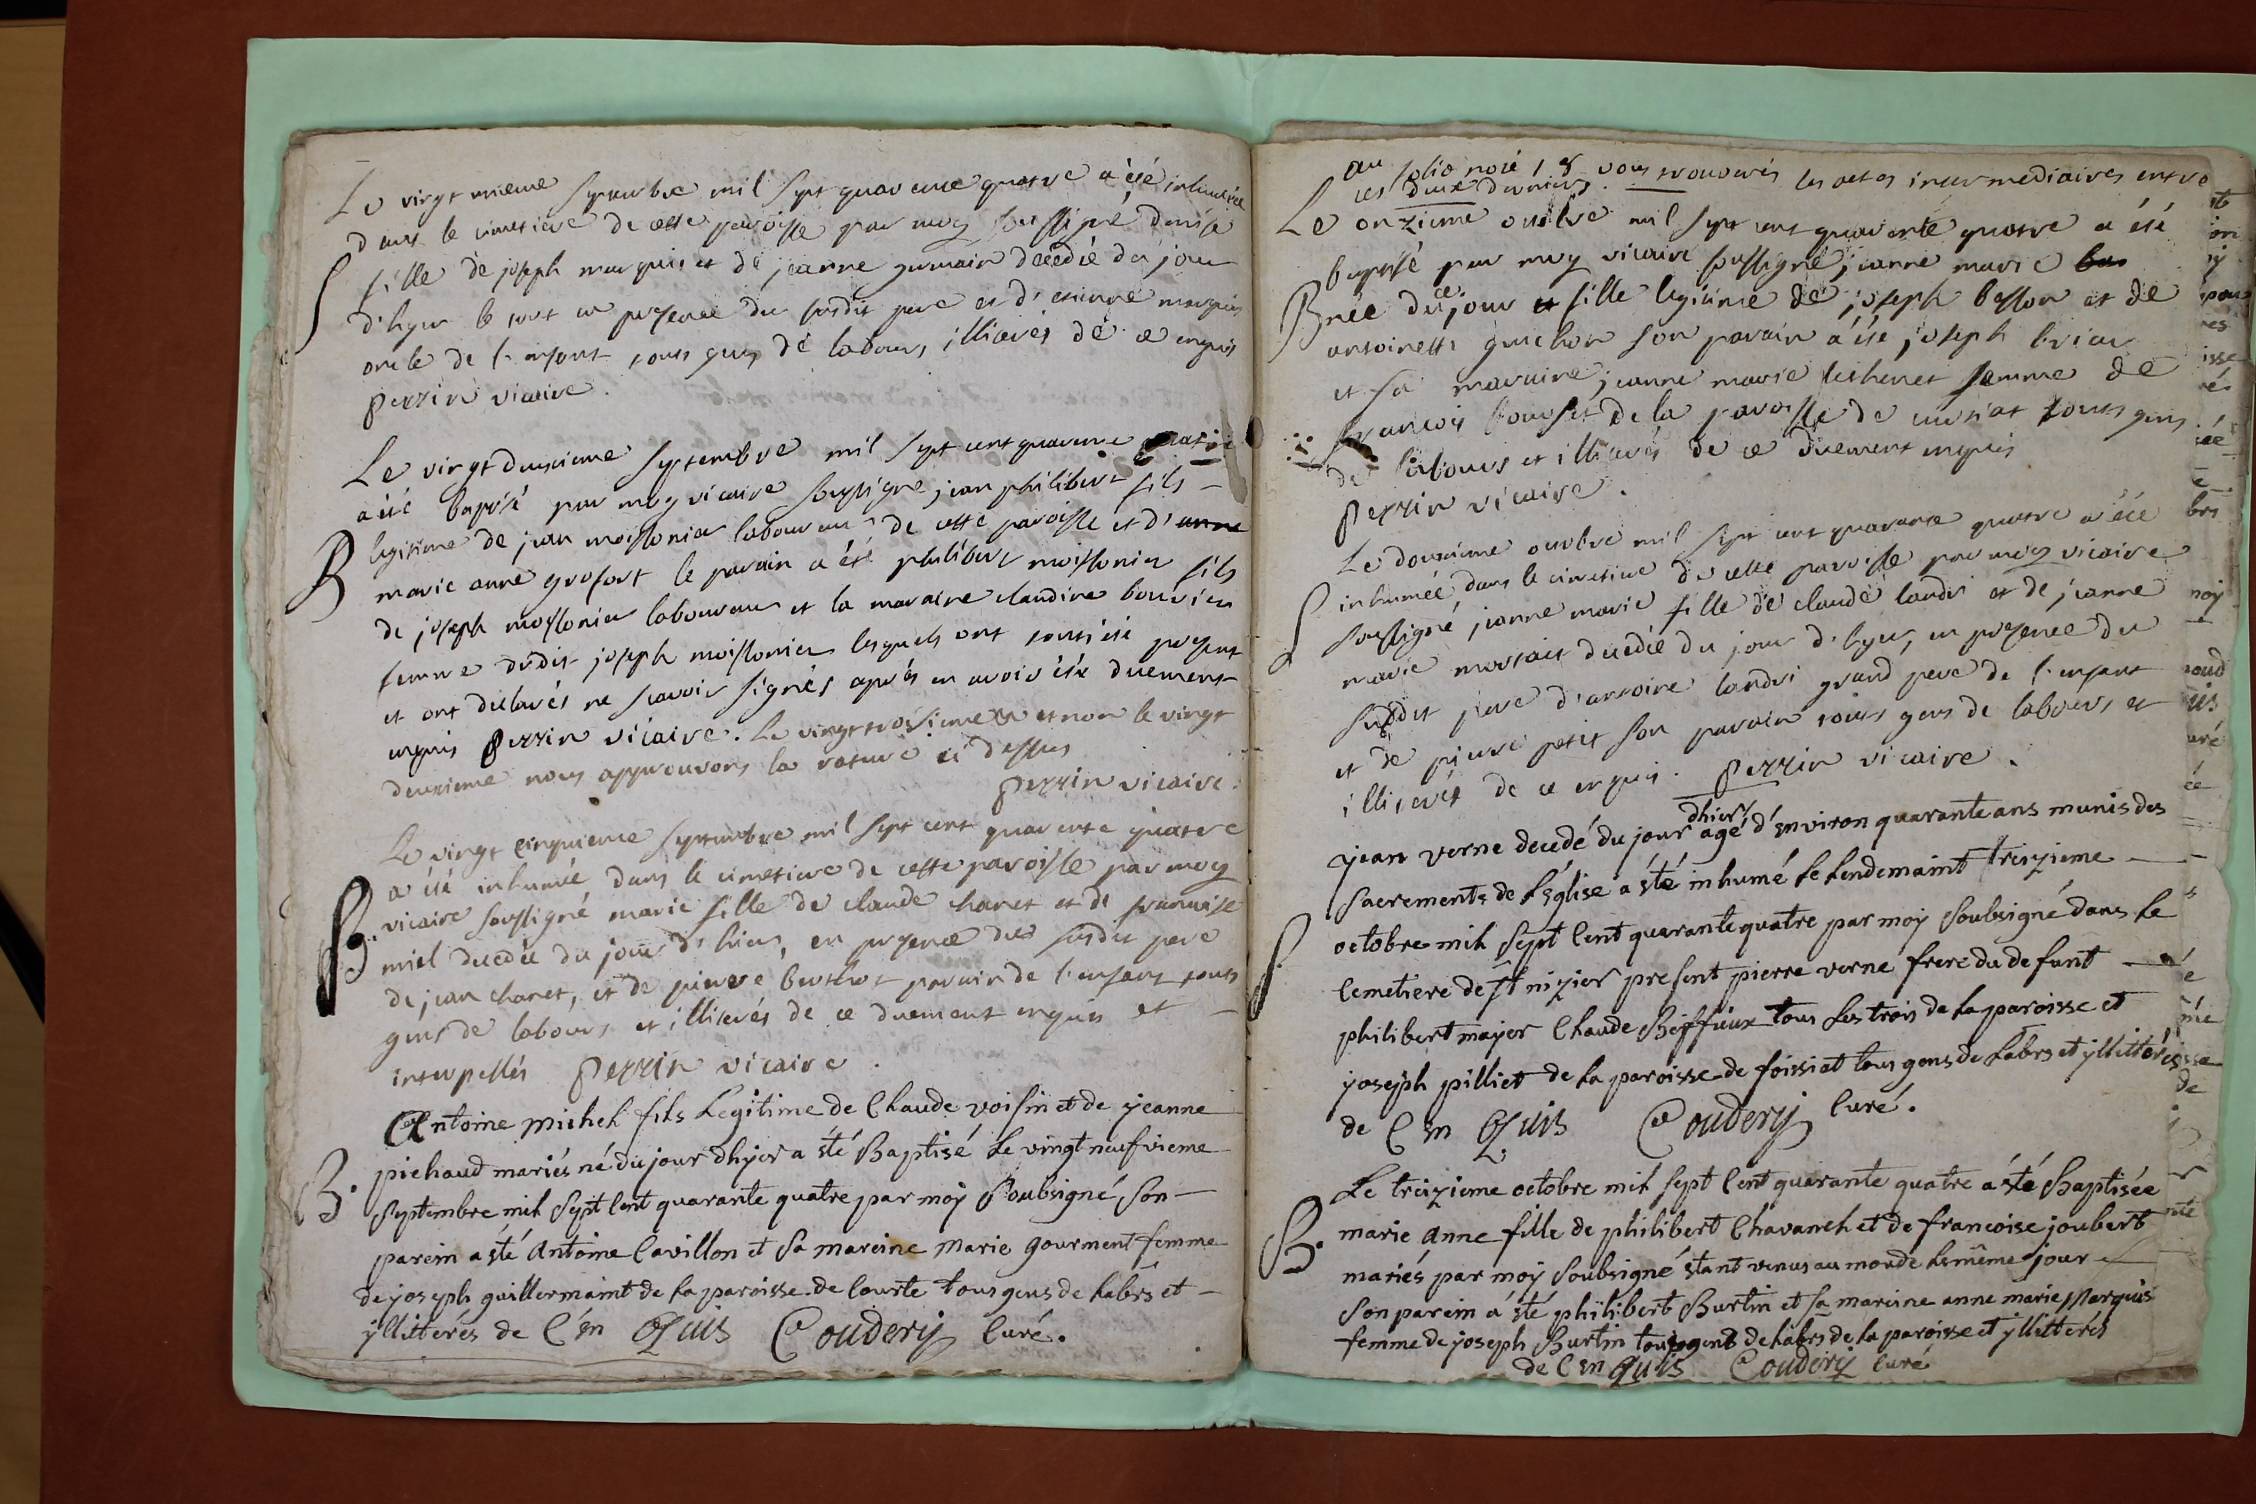 Le vingt unieme septembre mil sept quarente quatre a été inhumée
dans le cimetiere de cette paroisse par moy soussigné denise
S
fille de joseph marguis et de jeanne germain décédée du jour
d'hyer le tout en presence du susdit pere et d'etienne marguis
oncle de l'enfant touts gens de labours illiterés de ce enquis
perrin vicaire.
Le vingt deuxieme septembre mil sept cent quarente quatre
a été baptisé par moy vicaire soussigné jean philibert fils
B
legitime de jean moissonier laboureur de cette paroisse et d'anne
marie anne grofort le parain a été philibert moissonier fils
de joseph moissonier laboureur et la maraine claudine bouvier
femme dudit joseph moissonier lesquels ont touts été present
et ont declarés ne scavoir signés aprés en avoir été duement
enquis perrin vicaire. Le vingt troisieme et non le vingt
deuxieme nous approuvons la rature ci dessus
perrin vicaire.
Le vingt cinquieme septembre mil sept cent quarente quatre
a été inhumée dans le cimetiere de cette paroisse par moy
vicaire soussigné marie fille de claude chanet et de francoise
miel decedée du jour d'hier, en presence du susdit pere
de jean chanet, et de pierre berthot parain de l'enfant touts
gens de labours et illiterés de ce duement enquis et
interpellés perrin vicaire.
Antoine michel fils Legitime de Claude voisin et de yeanne
B.
pichaud mariés né du jour dhyer a été Baptisé Le vingt neufvieme
Septembre mil Sept Cent quarante quatre par moÿ Soubsigné, Son
parein a été Antoine Cavillon et Sa mareine Marie gourment femme
de yoseph guillermaint de La paroisse de Courte tous gens de Labrs et
yllitterés de C'en Quis Couderÿ Curé.
au folio noté 18 vous trouverés les actes intermediaires entre
ces deux derniers.
Le onzieme octobre mil sept cent quarente quatre a été
baptisé par moy vicaire soussigné jeanne marie bas
B
née du ce jour et fille legitime de joseph besson et de
antoinette guichon son parain a été joseph brian
et sa maraine jeanne marie lethenet femme de
francois bourset de la paroisse de curtiat touts gens
de labours et illiterés de ce duement enquis
perrin vicaire.
Le douzieme octobre mil sept cent quarante quatre a été
inhumée dans le cimetiere de cette paroisse par moy vicaire
S
soussigné jeanne marie fille de claude landri et de jeanne
marie morsait decedée du jour d'hyer, en presence du
susdit pere d'antoine landri grand pere de l'enfant
et de pierre petit son parain touts gens de labours et
illiterés de ce enquis. perrin vicaire.
yean verne decedé du jour dhier agé d'Environ quarante ans munis des
Sacrements de LEglise a été inhumé Le Lendemaint treizieme
S.
octobre mil Sept Cent quarante quatre par moÿ Soubsigné dans Le
Cemetiere de St nizier present pierre verne frere du defunt
philibert mayer Claude Beffieux tous Les trois de La paroisse et
yoseph pilliet de La paroisse de foissiat tous gens de Labrs et yllitterés
de C En Quis Couderÿ Curé.
Le treizieme octobre mil Sept Cent quarante quatre a été Baptisée
B.
marie Anne fille de philibert Chavanel et de francoise joubert
mariés par moÿ Soubsigné étant venus au monde Le même jour
Son parein a été philibert Burtin et Sa mareine anne marie Marguis
femme de yoseph Burtin tous gens de Labrs de La paroisse et yllitterés
de C En Quis Couderÿ Curé